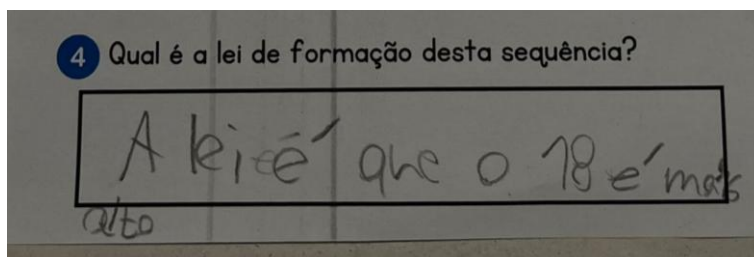 4 Qual é a lei de formação desta sequência?
A lei é que o 18 é mais
alto